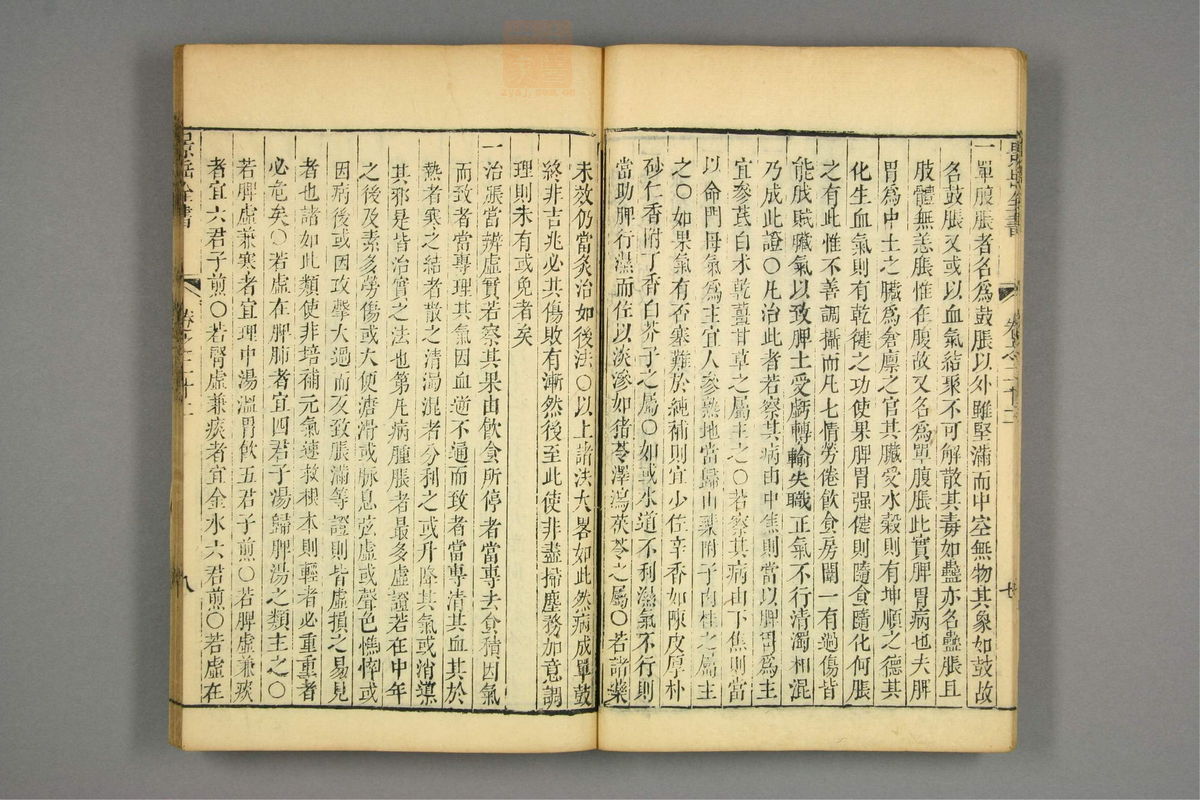 景岳全書
卷之二十二
七
一單腹脹者名為鼓脹以外雖堅滿而中空無物其象如鼓故
名鼓脹又或以血氣結聚不可解散其毒如蠱亦名蠱脹且
肢體無恙脹惟在腹故又名為單腹脹此實脾胃病也夫脾
胃為中土之臟為倉廩之官其臟受水穀則有坤順之德其
化生血氣則有乾健之功使果脾胃强健則隨食隨化何脹
之有此惟不善調攝而凡七情勞倦飲食房闈一有過傷皆
能戕賊臟氣以致脾土受虧轉輸失職正氣不行清濁相混
乃成此證○凡治此者若察其病由中焦則當以脾胃為主
宜參芪白朮乾薑甘草之屬主之○若察其病由下焦則當
以命門母氣為主宜人參熟地當歸山藥附子肉桂之屬主
之○如果氣有否塞難於純補則宜少佐辛香如陳皮厚朴
砂仁香附丁香白芥子之屬○如或水道不利濕氣不行則
當助脾行濕而佐以淡滲如猪苓澤瀉茯苓之屬○若諸藥
未效仍當灸治如後法○以上諸法大畧如此然病成單鼓
終非吉兆必其傷敗有漸然後至此使非盡掃塵務加意調
理則未有或免者矣
一治脹當辨虛實若察其果由飲食所停者當專去食積因氣
而致者當專理其氣因血逆不通而致者當專清其血其於
熱者寒之結者散之清濁混者分利之或升降其氣或消導
其邪是皆治實之法也第凡病腫脹者最多虛證若在中年
之後及素多勞傷或大便溏滑或脉息弦虛或聲色憔悴或
因病後或因攻擊太過而反致脹滿等證則皆虛損之易見
者也諸如此類使非培補元氣速救根本則輕者必重重者
必危矣○若虛在脾肺者宜四君子湯歸脾湯之類主之○
若脾虛兼寒者宜理中湯溫胃飲五君子煎○若脾虛兼痰
者宜六君子煎○若腎虛兼痰者宜金水六君煎○若虛在
景岳全書
卷之二十二
八